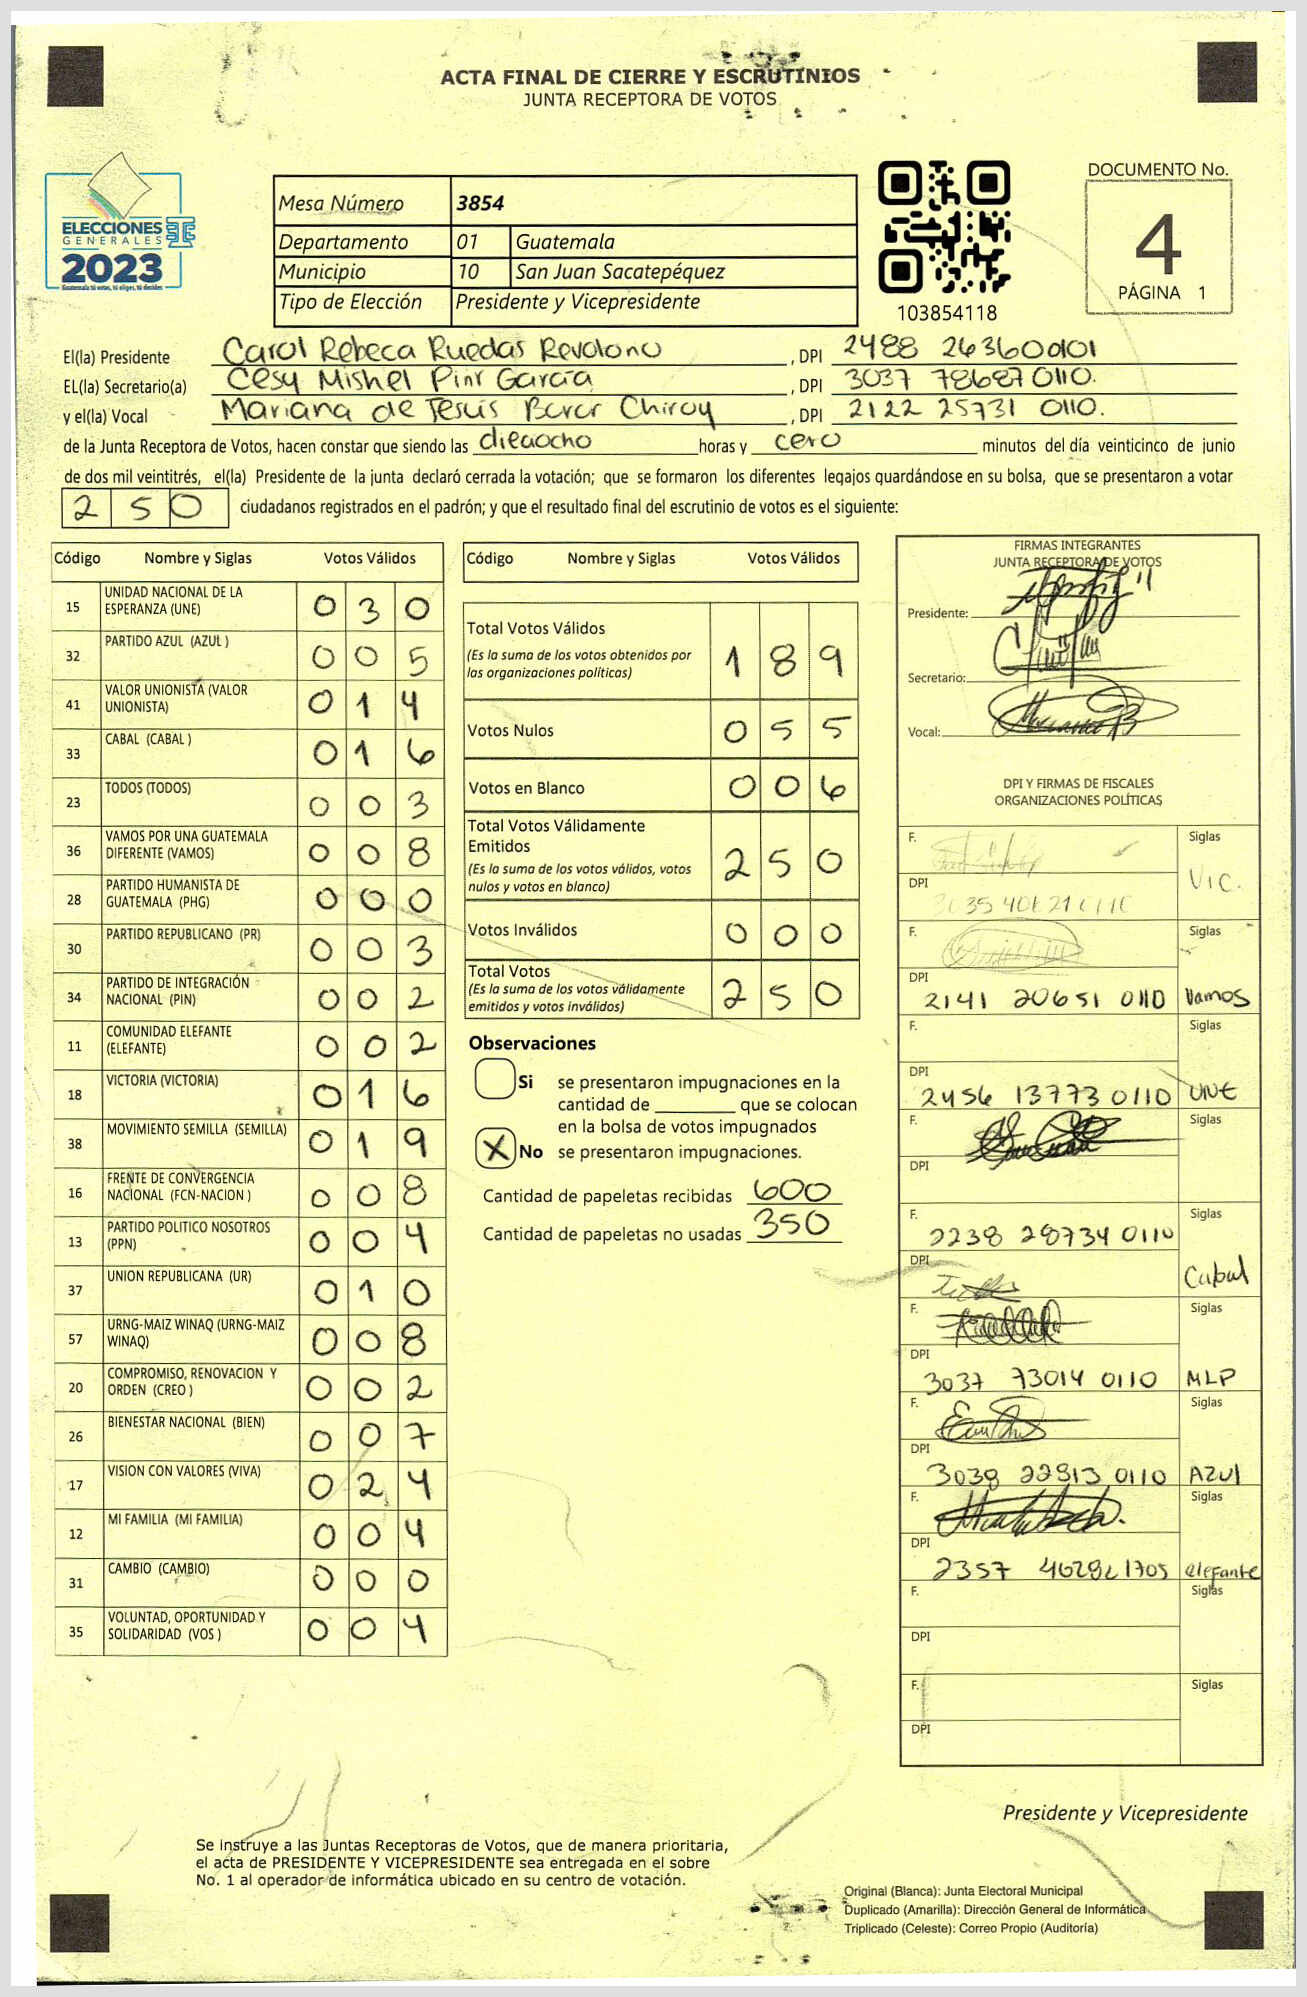 ACTA FINAL DE CIERRE Y ESCRUTINIOS
JUNTA RECEPTORA DE VOTOS
ELECCIONES
GENERALES
2023
Guatemala tú votas, tú eliges, tú decides
Mesa Número 3854
Departamento 01 Guatemala
Municipio 10 San Juan Sacatepéquez
Tipo de Elección Presidente y Vicepresidente
103854118
DOCUMENTO No.
4
PÁGINA 1
El(la) Presidente Carol Rebeca Ruedas Revolorio, DPI 2488 263600101
EL(la) Secretario(a) Cesy Mishel Pirir García, DPI 3037 78687 0110.
y el(la) Vocal Mariana de Jesús Boror Chiroy, DPI 2122 25731 0110.
de la Junta Receptora de Votos, hacen constar que siendo las dieciocho horas y cero minutos del día veinticinco de junio
de dos mil veintitrés, el(la) Presidente de la junta declaró cerrada la votación; que se formaron los diferentes legajos guardándose en su bolsa, que se presentaron a votar
250 ciudadanos registrados en el padrón; y que el resultado final del escrutinio de votos es el siguiente:
Código Nombre y Siglas Votos Válidos
15 UNIDAD NACIONAL DE LA ESPERANZA (UNE) 030
32 PARTIDO AZUL (AZUL ) 005
41 VALOR UNIONISTA (VALOR UNIONISTA) 014
33 CABAL (CABAL ) 016
23 TODOS (TODOS) 003
36 VAMOS POR UNA GUATEMALA DIFERENTE (VAMOS) 008
28 PARTIDO HUMANISTA DE GUATEMALA (PHG) 000
30 PARTIDO REPUBLICANO (PR) 003
34 PARTIDO DE INTEGRACIÓN NACIONAL (PIN) 002
11 COMUNIDAD ELEFANTE (ELEFANTE) 002
18 VICTORIA (VICTORIA) 016
38 MOVIMIENTO SEMILLA (SEMILLA) 019
16 FRENTE DE CONVERGENCIA NACIONAL (FCN-NACION ) 008
13 PARTIDO POLITICO NOSOTROS (PPN) 004
37 UNION REPUBLICANA (UR) 010
57 URNG-MAIZ WINAQ (URNG-MAIZ WINAQ) 008
20 COMPROMISO, RENOVACION Y ORDEN (CREO ) 002
26 BIENESTAR NACIONAL (BIEN) 007
17 VISION CON VALORES (VIVA) 024
12 MI FAMILIA (MI FAMILIA) 004
31 CAMBIO (CAMBIO) 000
35 VOLUNTAD, OPORTUNIDAD Y SOLIDARIDAD (VOS ) 004
Código Nombre y Siglas Votos Válidos
Total Votos Válidos 189
(Es la suma de los votos obtenidos por
las organizaciones políticas)
Votos Nulos 055
Votos en Blanco 006
Total Votos Válidamente
Emitidos 250
(Es la suma de los votos válidos, votos
nulos y votos en blanco)
Votos Inválidos 000
Total Votos 250
(Es la suma de los votos válidamente
emitidos y votos inválidos)
Observaciones
Si se presentaron impugnaciones en la
cantidad de ________ que se colocan
en la bolsa de votos impugnados
X No se presentaron impugnaciones.
Cantidad de papeletas recibidas 600
Cantidad de papeletas no usadas 350
FIRMAS INTEGRANTES
JUNTA RECEPTORA DE VOTOS
Presidente:
Secretario:
Vocal:
DPI Y FIRMAS DE FISCALES
ORGANIZACIONES POLÍTICAS
F. Siglas
DPI Vic.
F. Siglas
DPI
2141 20651 0110 Vamos
F. Siglas
DPI
2456 13773 0110 UNE
F. Siglas
DPI
F. Siglas
2238 28734 0110
DPI Cabal
F. Siglas
DPI
3037 73014 0110 MLP
F. Siglas
DPI
3038 22813 0110 AZUl
F. Siglas
DPI
2357 1705 elefante
F. Siglas
DPI
F. Siglas
DPI
Presidente y Vicepresidente
Se instruye a las Juntas Receptoras de Votos, que de manera prioritaria,
el acta de PRESIDENTE Y VICEPRESIDENTE sea entregada en el sobre
No. 1 al operador de informática ubicado en su centro de votación.
Original (Blanca): Junta Electoral Municipal
Duplicado (Amarilla): Dirección General de Informática
Triplicado (Celeste): Correo Propio (Auditoría)